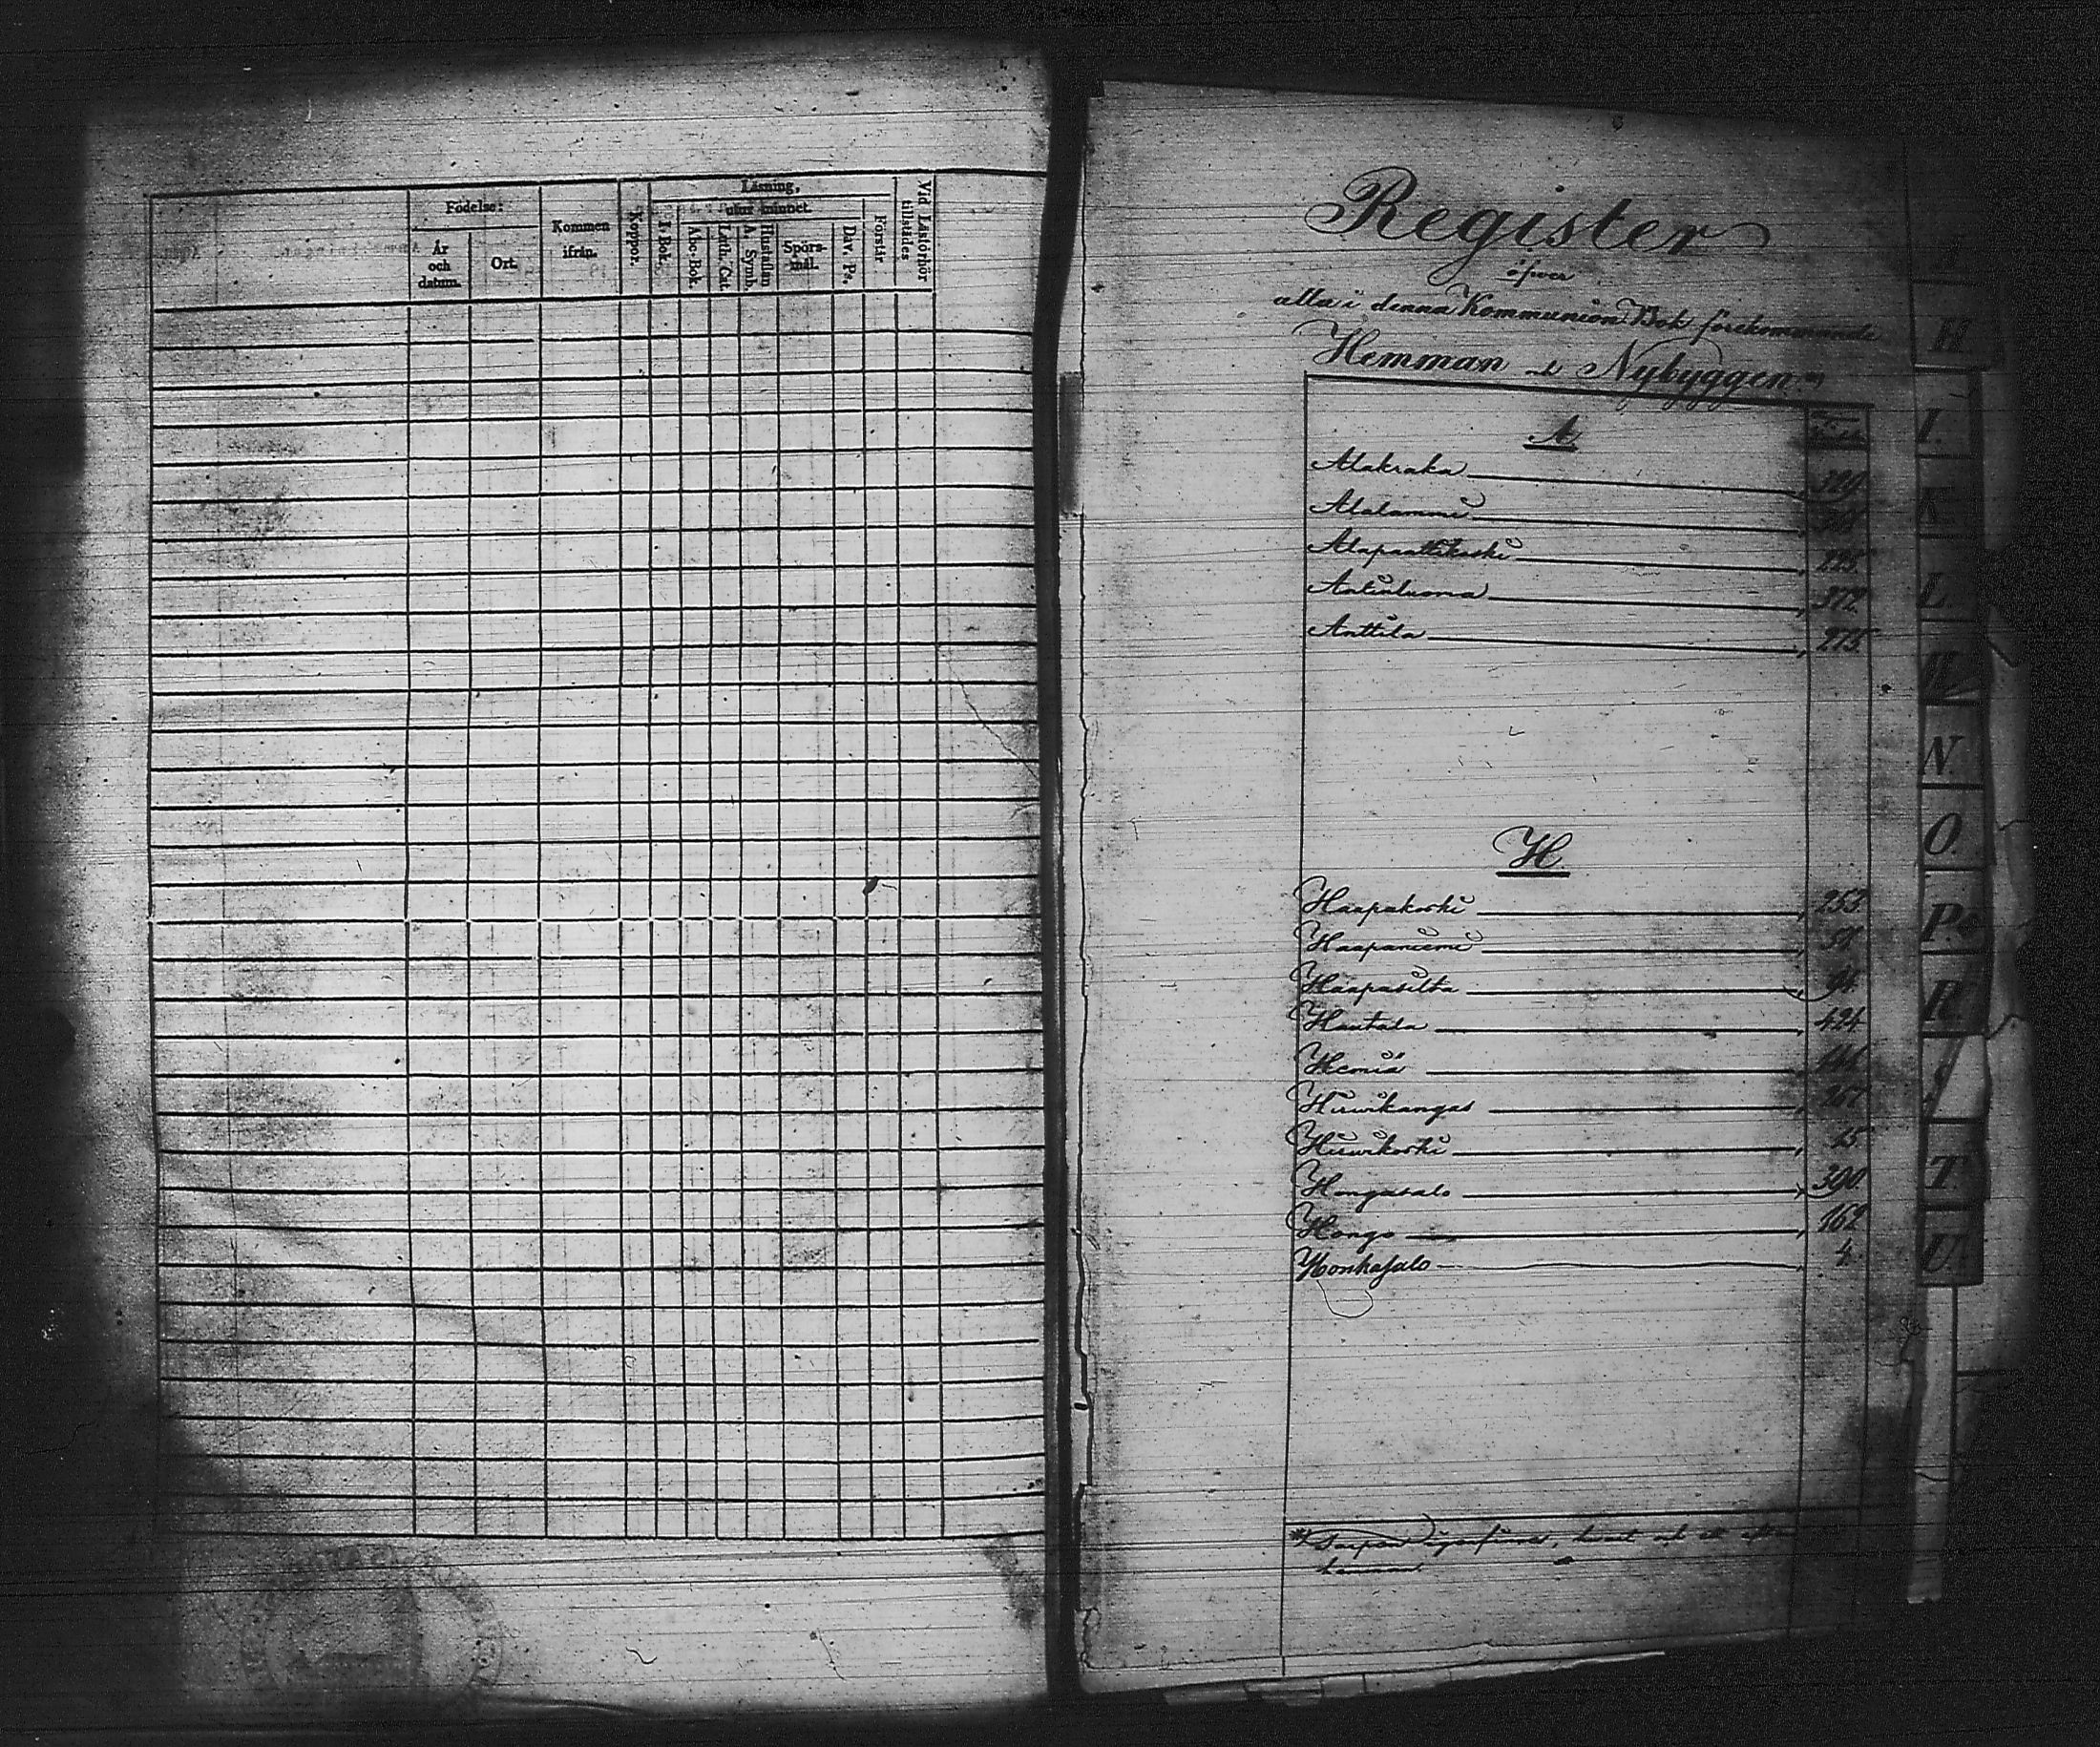 Födelse:
År
och
datum.
Ort.
Kommen
ifrån.
Koppor.
Läsning,
I Bok.
utur minnet.
Abc-Bok.
Luth. Cat.
Hustaflan
A. Symb.
Spörs-
mål.
Dav. Ps.
Förstår
Vid Läsförhör
tillstädes
Register
öfver
alla i denna Kommunion Bok förekommande
Hemman o Nybyggen *)
A
Alakraka 329.
Alalammi
Alapaattikoski 225.
Antinluoma 372.
Anttila 275.
H
Haapakoski 253.
Haapaniemi
Haapasilta 94.
Hautala 424
Hemiä
Hirvikangas 267
Hirvikoski 15
Hongasalo 390
Hongo 162
Honkasalo 4.
*) Torpen
hemman
A
H
I.
K.
L.
M
N.
O.
P.
R
S
T
U.